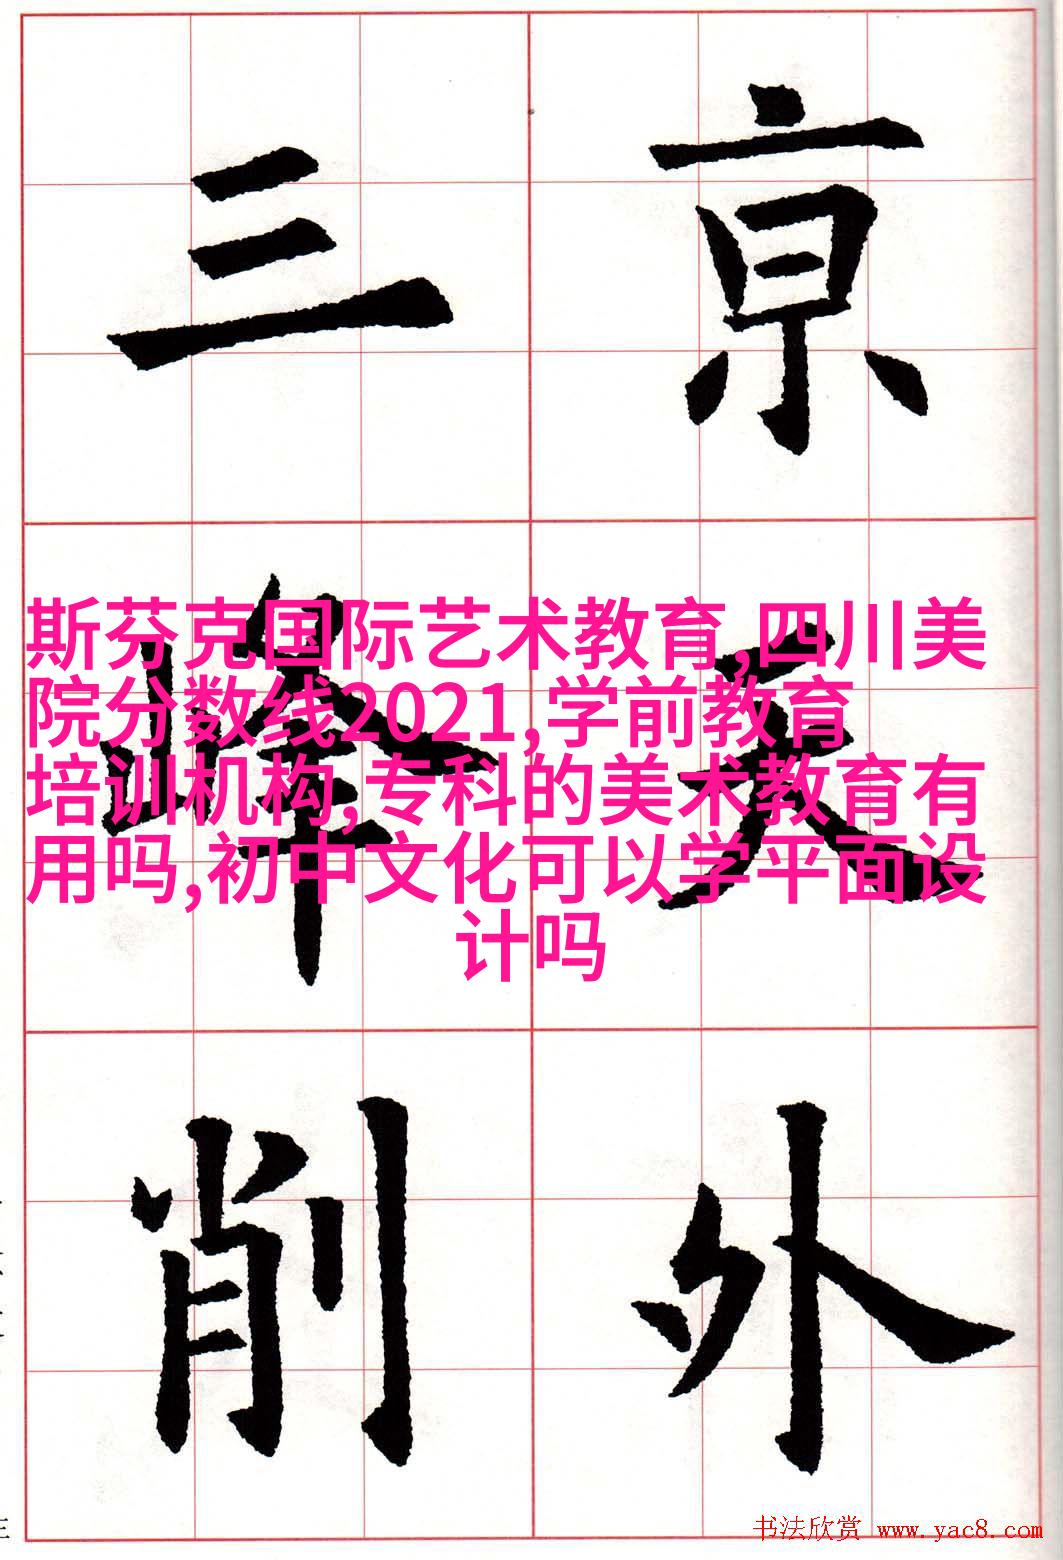 亰天外
三峰削
斯芬克国际艺术教育,四川美
院分数线2021,学前教育
培训机构,专科的美术教育有
用吗,初中文化可以学平面设
计吗
书法欣赏 www.yac8.com